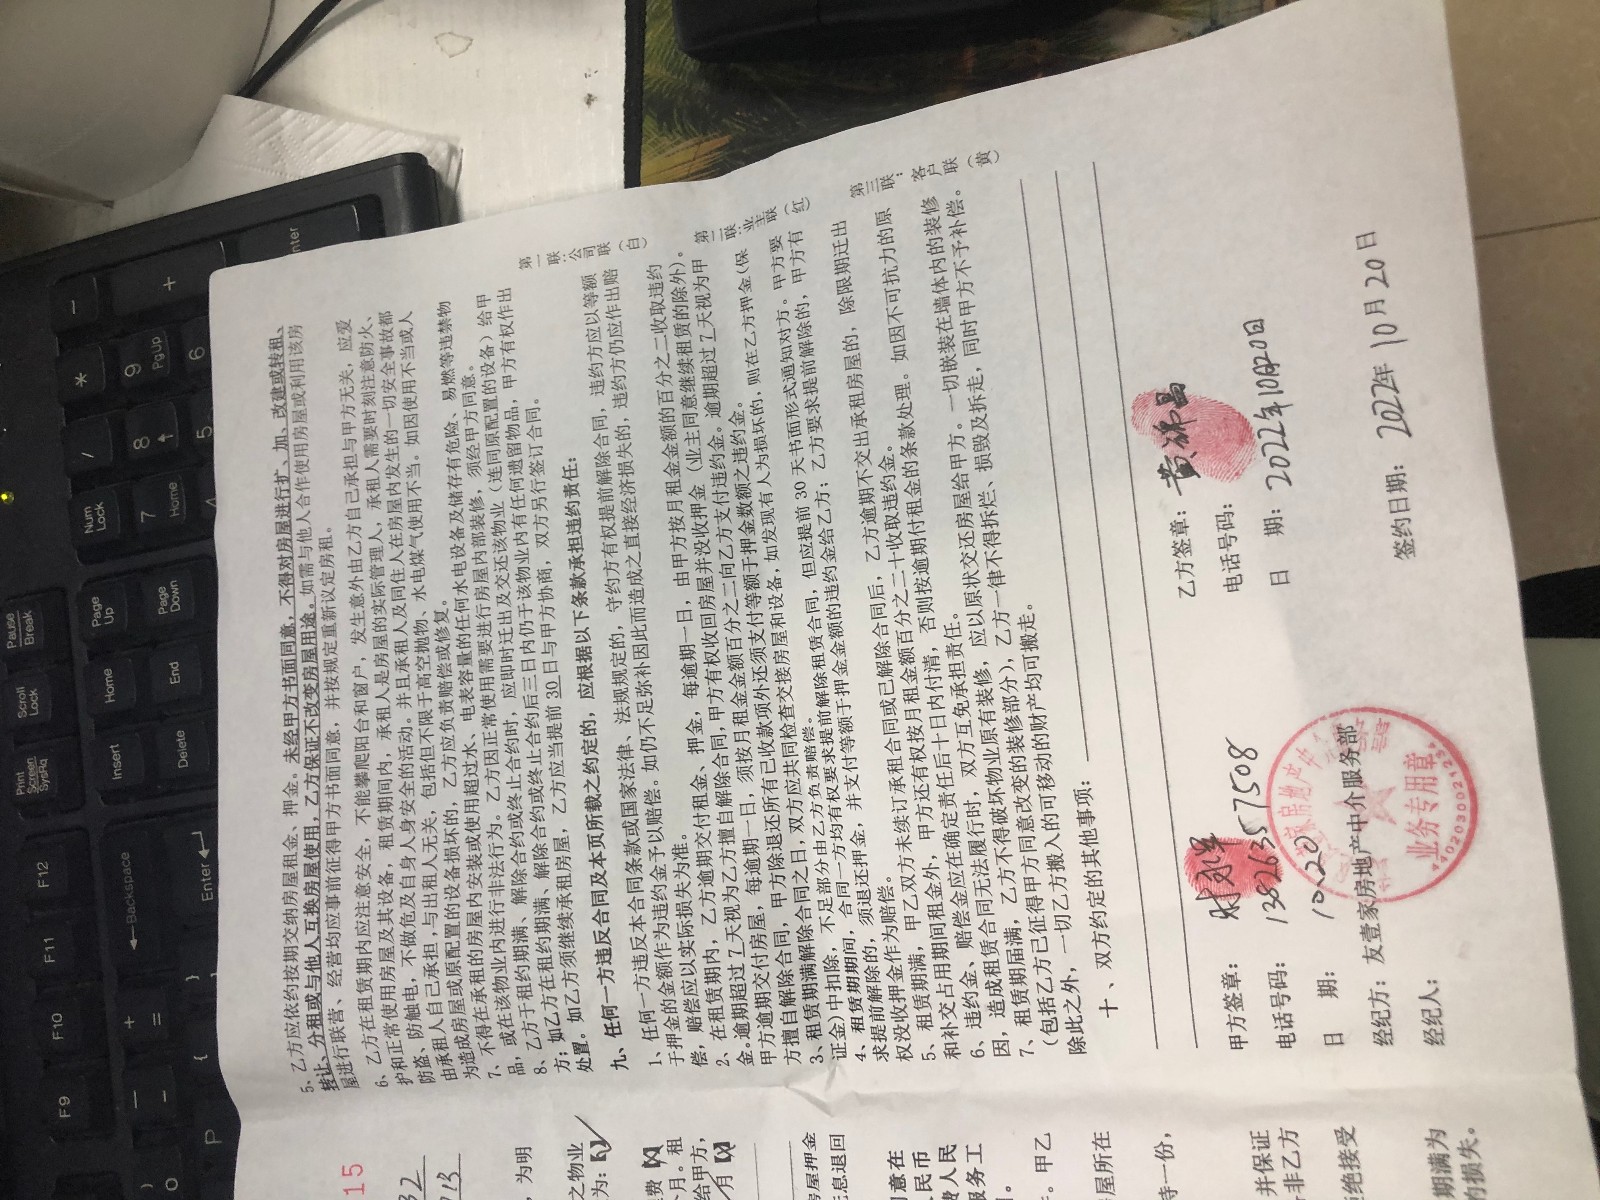 5、乙方应依约按期交纳房屋租金、押金。未经甲方书面同意,不得对房屋进行扩、加、改建或转租、
转让、分租或与他人互换房屋使用,乙方保证不改变房屋用途。如需与他人合作使用房屋或利用该房
屋进行联营、经营均应事前征得甲方书面同意,并按规定重新议定房租。
6、乙方在租赁期内应注意安全,不能攀爬阳台和窗户,发生意外由乙方自己承担与甲方无关,应爱
护和正常使用房屋及其设备,租赁期间内,承租人是房屋的实际管理人,承租人需要时刻注意防火、
防盗、防触电,不做危及自身人身安全的活动。并且承租人及同住人在房屋内发生的一切安全事故都
由承租人自己承担,与出租人无关,包括但不限于高空抛物、水电煤气使用不当。如因使用不当或人
为造成房屋或原配置的设备损坏的,乙方应负责赔偿或修复。
7、不得在承租的房屋内安装或使用超过水、电表容量的任何水电设备及储存有危险、易燃等违禁物
品,或在该物业内进行非法行为。乙方因正常使用需要进行房屋内部装修,须经甲方同意。
8、乙方于租约期满、解除合约或终止合约时,应即时迁出及交还该物业(连同原配置的设备)给甲
方;如乙方在租约期满、解除合约或终止合约后三日内仍于该物业内有任何遗留物品,甲方有权作出
处置。如乙方须继续承租房屋,乙方应当提前30日与甲方协商,双方另行签订合同。
九、任何一方违反合同及本页所载之约定的,应根据以下条款承担违约责任:
1、任何一方违反本合同条款或国家法律、法规规定的,守约方有权提前解除合同,违约方应以等额
于押金的金额作为违约金予以赔偿。如仍不足弥补因此而造成之直接经济损失的,违约方仍应作出赔
偿,赔偿应以实际损失为准。
2、在租赁期内,乙方逾期交付租金、押金,每逾期一日,由甲方按月租金金额的百分之二收取违约
金。逾期超过7天视为乙方擅自解除合同,甲方有权收回房屋并没收押金(业主同意继续租赁的除外)。
甲方逾期交付房屋,每逾期一日,须按月租金金额百分之二向乙方支付违约金。逾期超过7天视为甲
方擅自解除合同,甲方除退还所有已收款项外还须支付等额于押金数额之违约金。
3、租赁期满解除合同之日,双方应共同检查交接房屋和设备,如发现有人为损坏的,则在乙方押金(保
证金)中扣除,不足部分由乙方负责赔偿。
4、租赁期期间,合同一方均有权要求提前解除租赁合同,但应提前30天书面形式通知对方。甲方要
求提前解除的,须退还押金,并支付等额于押金金额的违约金给乙方;乙方要求提前解除的,甲方有
权没收押金作为赔偿。
5、租赁期满,甲乙双方未续订承租合同或已解除合同后,乙方逾期不交出承租房屋的,除限期迁出
和补交占用期间租金外,甲方还有权按月租金额百分之二十收取违约金。
6、违约金、赔偿金应在确定责任后十日内付清,否则按逾期付租金的条款处理。如因不可抗力的原
因,造成租赁合同无法履行时,双方互免承担责任。
7、租赁期届满,乙方不得破坏物业原有装修,应以原状交还房屋给甲方。一切嵌装在墙体内的装修
(包括乙方已征得甲方同意改变的装修部分),乙方一律不得拆烂、损毁及拆走,同时甲方不予补偿。
除此之外,一切乙方搬入的可移动的财产均可搬走。
十、双方约定的其他事项:
第一联:公司联(白)
第二联:业主联(红)
第三联:客户联(黄)
甲方签章:
电话号码:13826357508
日 期:10.20
经纪方:友壹家房地产中介服务部
经纪人:
业务专用章
4402030021234
乙方签章:黄锦昌
电话号码:
日 期:2022年10月20日
签约日期:2022年10月20日
15
32
213
,为明
之物业
为:
费
个月。租
给甲方,
月
房屋押金
无息退回
同意在
人民币
费人民
服务工
。甲乙
屋所在
持一份,
并保证
若非乙方
拒绝接受
期满为
的损失。
Print Screen SysRq
Scroll Lock
Pause Break
Insert
Home
Page Up
Delete
End
Page Down
Num Lock
/
*
-
7 Home
8
9 PgUp
+
5
6
Enter
F9
F10
F11
F12
Backspace
Enter
P